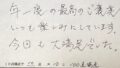 年一度の最高のご褒美
いつも楽しみにしています。
今回も大満足でした。